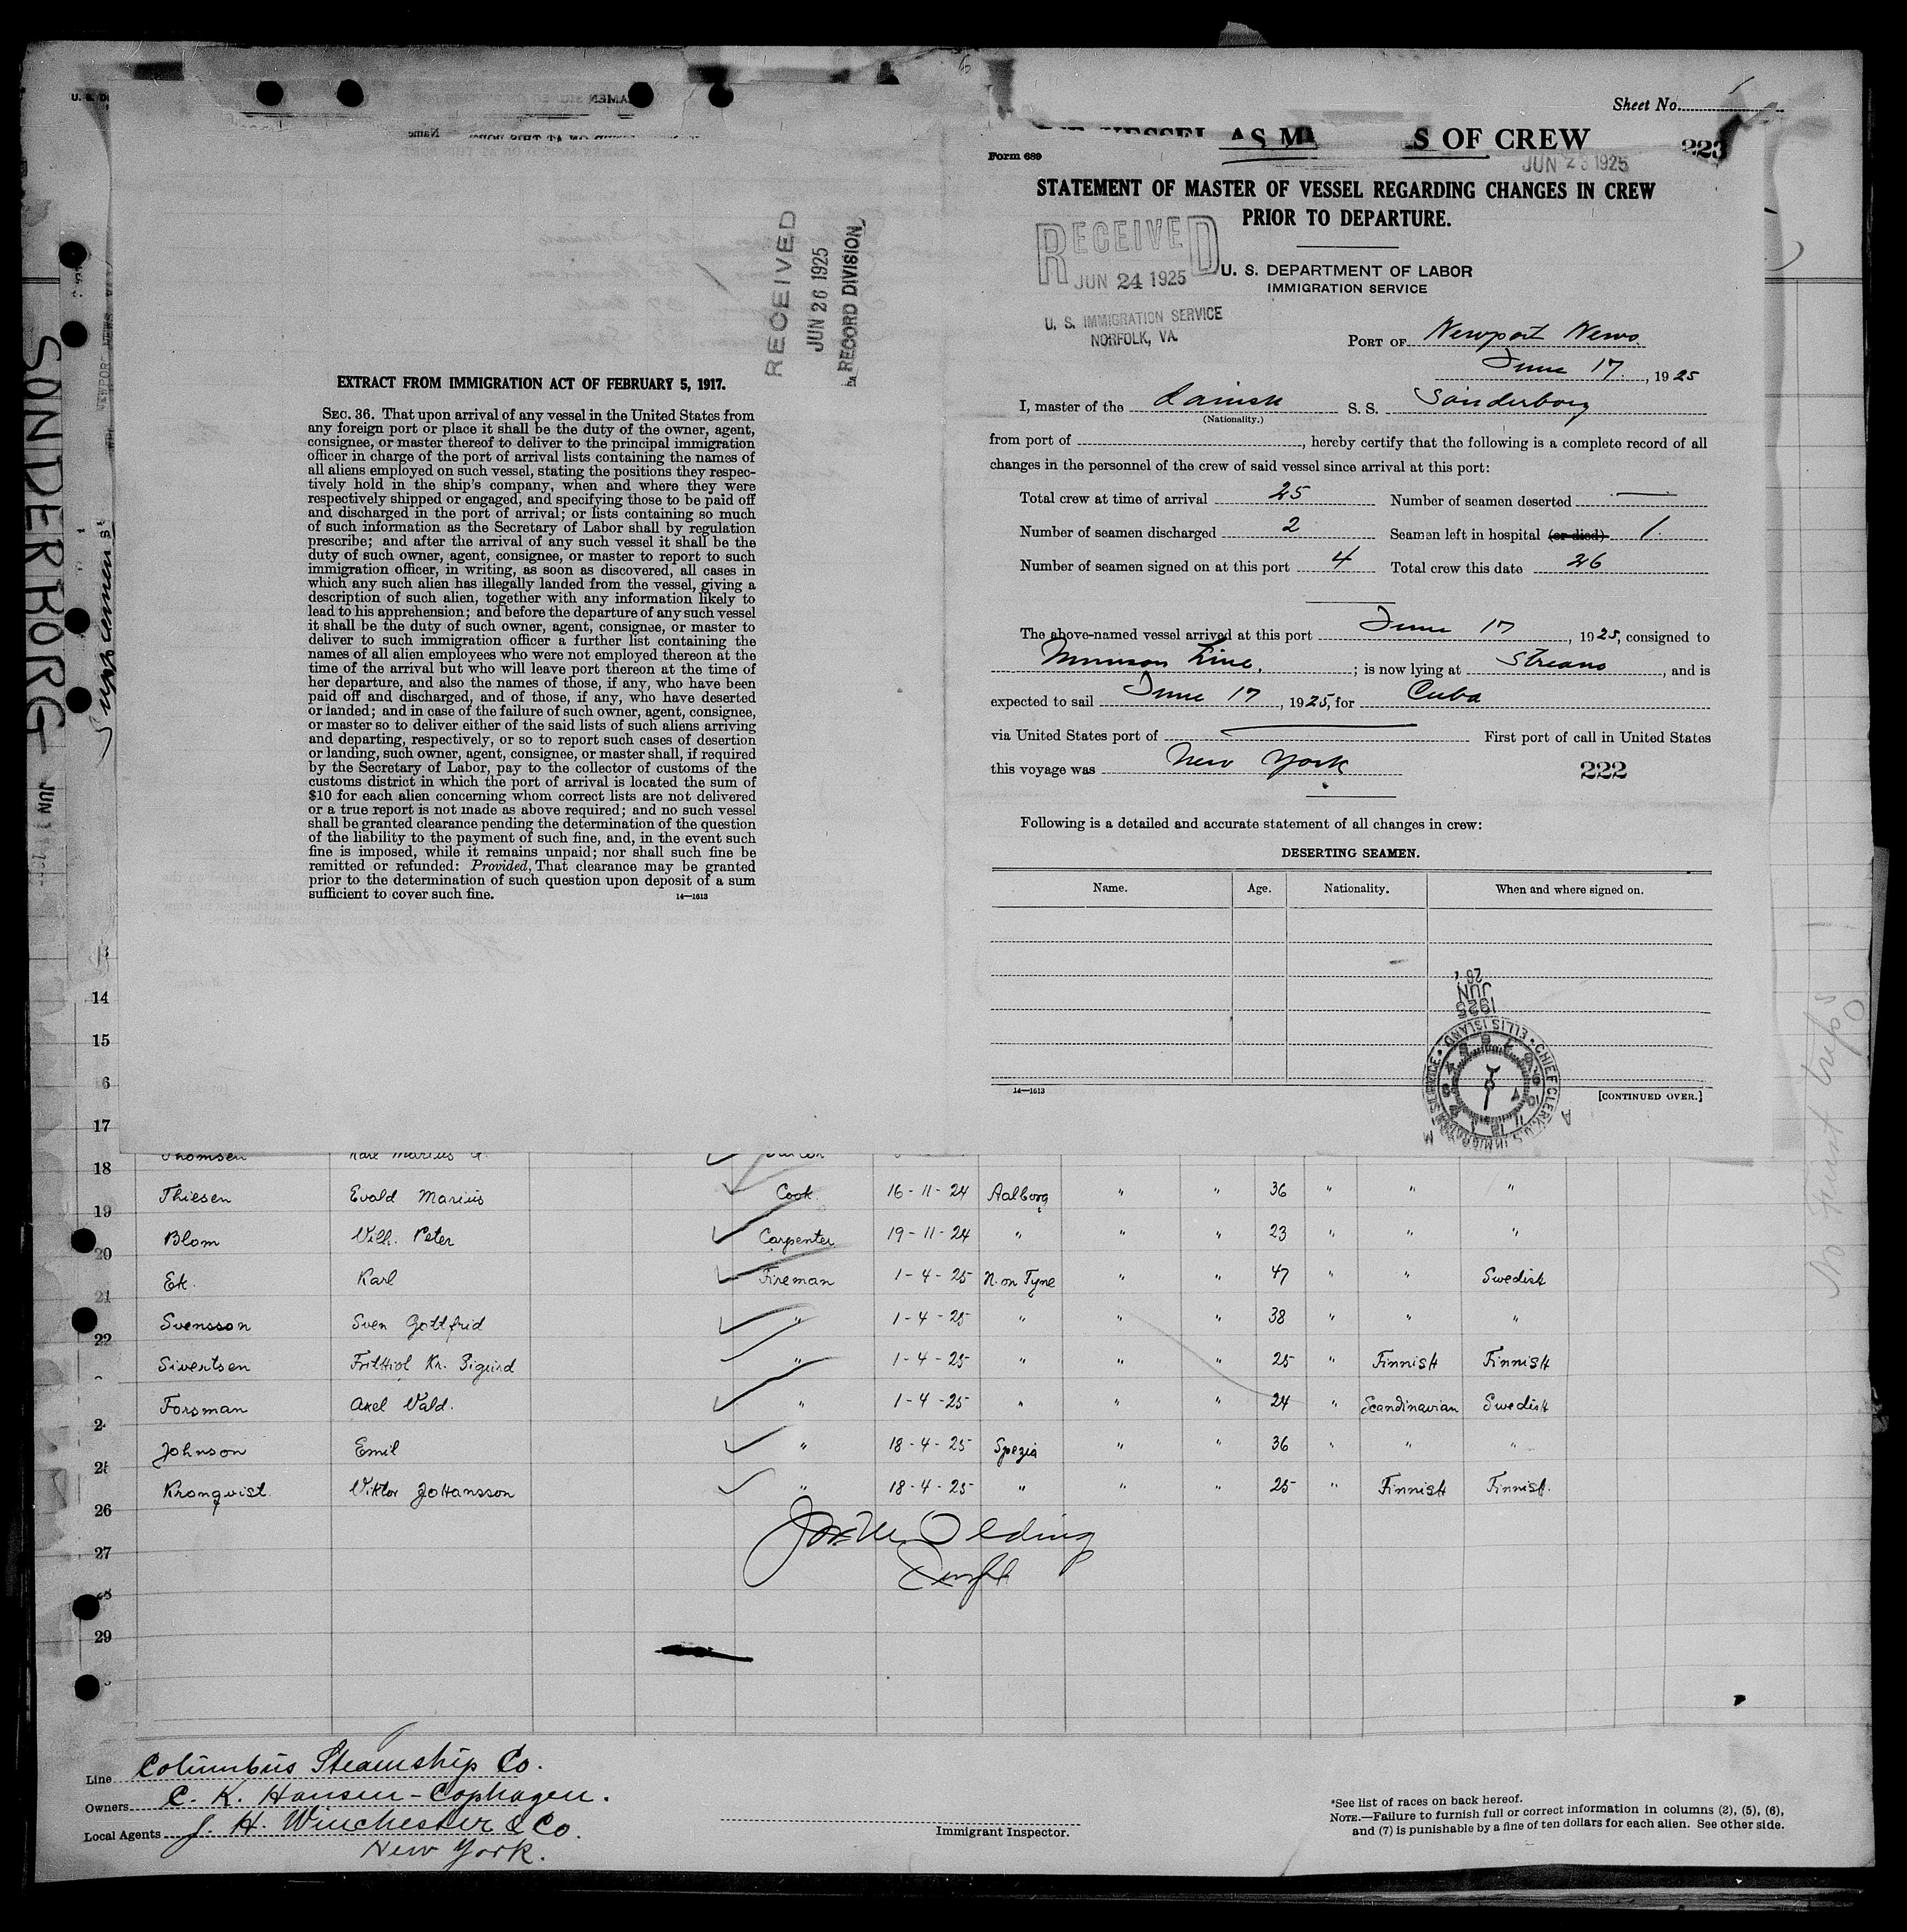 Sheet No.
AS M S OF CREW
223
JUN 23 1925
Form 689
STATEMENT OF MASTER OF VESSEL REGARDING CHANGES IN CREW
PRIOR TO DEPARTURE.
RECEIVED
JUN 24 1925
U. S. IMMIGRATION SERVICE
NORFOLK, VA.
U. S. DEPARTMENT OF LABOR
IMMIGRATION SERVICE
PORT OF Newport News
June 17, 1925
I, master of the danish S. S. Sönderborg
(Nationality.)
from port of , hereby certify that the following is a complete record of all
changes in the personnel of the crew of said vessel since arrival at this port:
Total crew at time of arrival 25 Number of seamen deserted —
Number of seamen discharged 2 Seaman left in hospital (or died) 1.
Number of seamen signed on at this port 4 Total crew this date 26
The above-named vessel arrived at this port June 17, 1925, consigned to
Munson Line, ; is now lying at Stream, and is
expected to sail June 17, 1925, for Cuba
via United States port of — First port of call in United States
this voyage was New York
222
Following is a detailed and accurate statement of all changes in crew:
DESERTING SEAMEN.
Name. Age. Nationality. When and where signed on.
14—1613
[CONTINUED OVER.]
1925
JUN
26
CHIEF CLERK U.S. IMMIGRATION SERVICE ELLIS ISLAND
RECEIVED
JUN 26 1925
RECORD DIVISION
EXTRACT FROM IMMIGRATION ACT OF FEBRUARY 5, 1917.
SEC. 36. That upon arrival of any vessel in the United States from
any foreign port or place it shall be the duty of the owner, agent,
consignee, or master thereof to deliver to the principal immigration
officer in charge of the port of arrival lists containing the names of
all aliens employed on such vessel, stating the positions they respec-
tively hold in the ship's company, when and where they were
respectively shipped or engaged, and specifying those to be paid off
and discharged in the port of arrival; or lists containing so much
of such information as the Secretary of Labor shall by regulation
prescribe; and after the arrival of any such vessel it shall be the
duty of such owner, agent, consignee, or master to report to such
immigration officer, in writing, as soon as discovered, all cases in
which any such alien has illegally landed from the vessel, giving a
description of such alien, together with any information likely to
lead to his apprehension; and before the departure of any such vessel
it shall be the duty of such owner, agent, consignee, or master to
deliver to such immigration officer a further list containing the
names of all alien employees who were not employed thereon at the
time of the arrival but who will leave port thereon at the time of
her departure, and also the names of those, if any, who have been
paid off and discharged, and of those, if any, who have deserted
or landed; and in case of the failure of such owner, agent, consignee,
or master so to deliver either of the said lists of such aliens arriving
and departing, respectively, or so to report such cases of desertion
or landing, such owner, agent, consignee, or master shall, if required
by the Secretary of Labor, pay to the collector of customs of the
customs district in which the port of arrival is located the sum of
$10 for each alien concerning whom correct lists are not delivered
or a true report is not made as above required; and no such vessel
shall be granted clearance pending the determination of the question
of the liability to the payment of such fine, and, in the event such
fine is imposed, while it remains unpaid; nor shall such fine be
remitted or refunded: Provided, That clearance may be granted
prior to the determination of such question upon deposit of a sum
sufficient to cover such fine.
14—1613
SONDERBORG
JUN
13
14
15
16
17
18 Thomsen Karl Marius
Thiesen Evald Marius Cook 16-11-24 Aalborg " " 36 " " "
19
Blom Vilh. Peter Carpenter 19-11-24 " " " 23 " " "
20
Ek. Karl Fireman 1-4-25 N. on Tyne " " 47 " " Swedish
21
Svensson Sven Gottfrid " 1-4-25 " " " 38 " " "
22
Sivertsen Frithiol Kr. Sigurd " 1-4-25 " " " 25 " Finnish Finnish
Forsman Axel Vald. " 1-4-25 " " " 24 " Scandinavian Swedish
24
Johnson Emil " 18-4-25 Spezia " " 36 " " "
25
Kronqvist Viktor Johansson " 18-4-25 " " " 25 " Finnish Finnish.
26
27
28
29
No First trips
Line Columbus Steamship Co.
Owners C. K. Hansen - Cophagen.
Local Agents J. H. Winchester & Co.
New York.
Immigrant Inspector.
*See list of races on back hereof.
NOTE.—Failure to furnish full or correct information in columns (2), (5), (6),
and (7) is punishable by a fine of ten dollars for each alien. See other side.